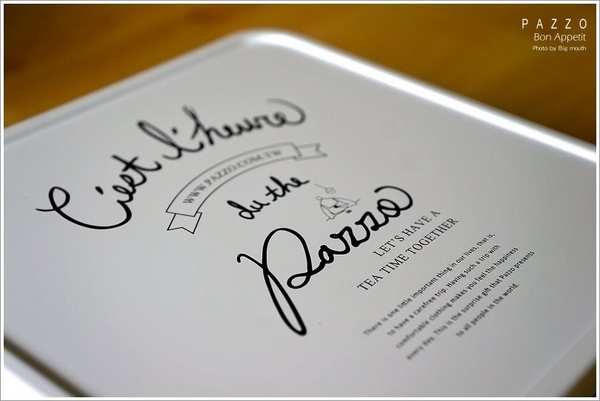 PAZZO
Bon Appetit
Photo by Big mouth
C'est l'heure
WWW.PAZZO.COM.TW
du the
Pazzo
LET'S HAVE A
TEA TIME TOGETHER
There is one little important thing in our lives, that is,
to have a carefree trip. Having such a trip with
comfortable clothing makes you feel the happiness
every day. This is the surprise gift that Pazzo presents
to all people in the world.